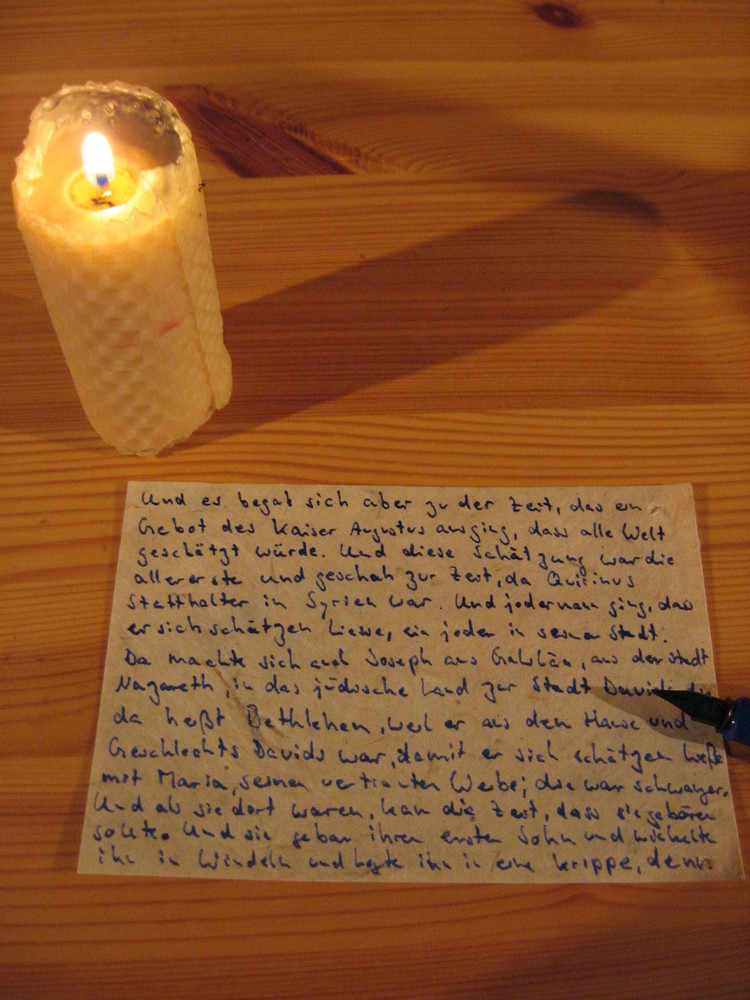 Und es begab sich aber zu der Zeit, das ein
Gebot des Kaiser Augustus ausging, dass alle Welt
geschätzt würde. Und diese Schätzung war die
allererste und geschah zur Zeit, da Quirinus
Statthalter in Syrien war. Und jedermann ging, das
er sich schätzen liesse, ein jeder in seine Stadt.
Da machte sich auch Joseph aus Galiläa, aus der Stadt
Nazareth, in das jüdische Land zur Stadt Davids die
da heißt Bethlehem, weil er aus dem Hause und
Geschlechts Davids war, damit er sich schätzen ließe
mit Maria, seinem vertrauten Weibe; die war schwanger.
Und als sie dort waren, kam die Zeit, dass sie gebären
sollte. Und sie gebar ihren ersten Sohn und wickelte
ihn in Windeln und legte ihn in eine Krippe, denn